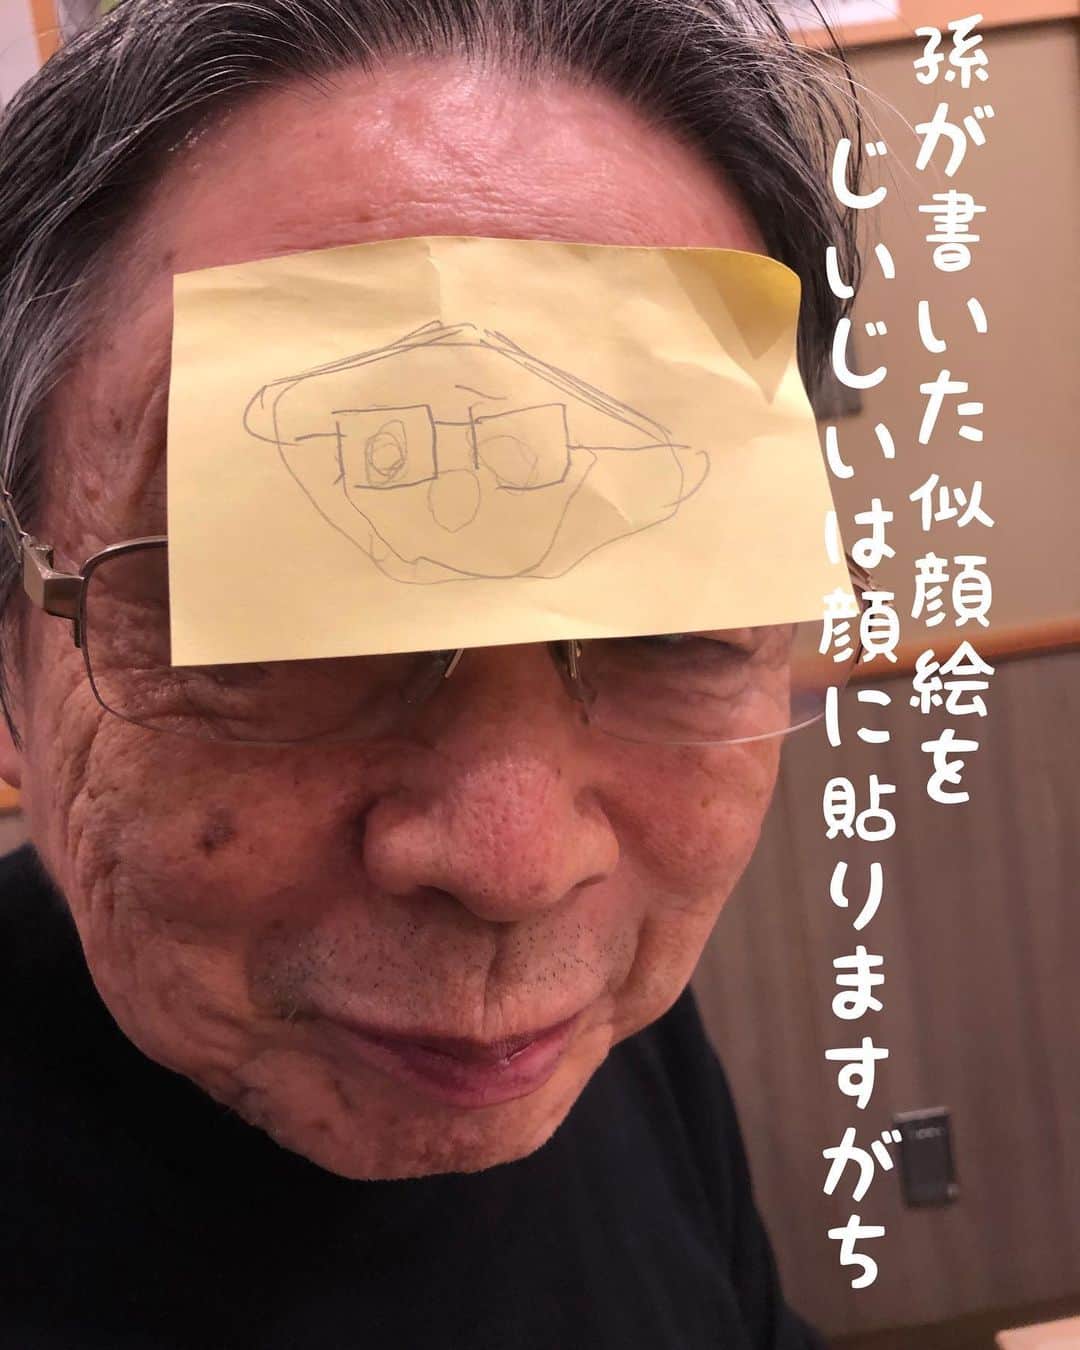 孫が書いた似顔絵を
じいじいは顔に貼りますがち